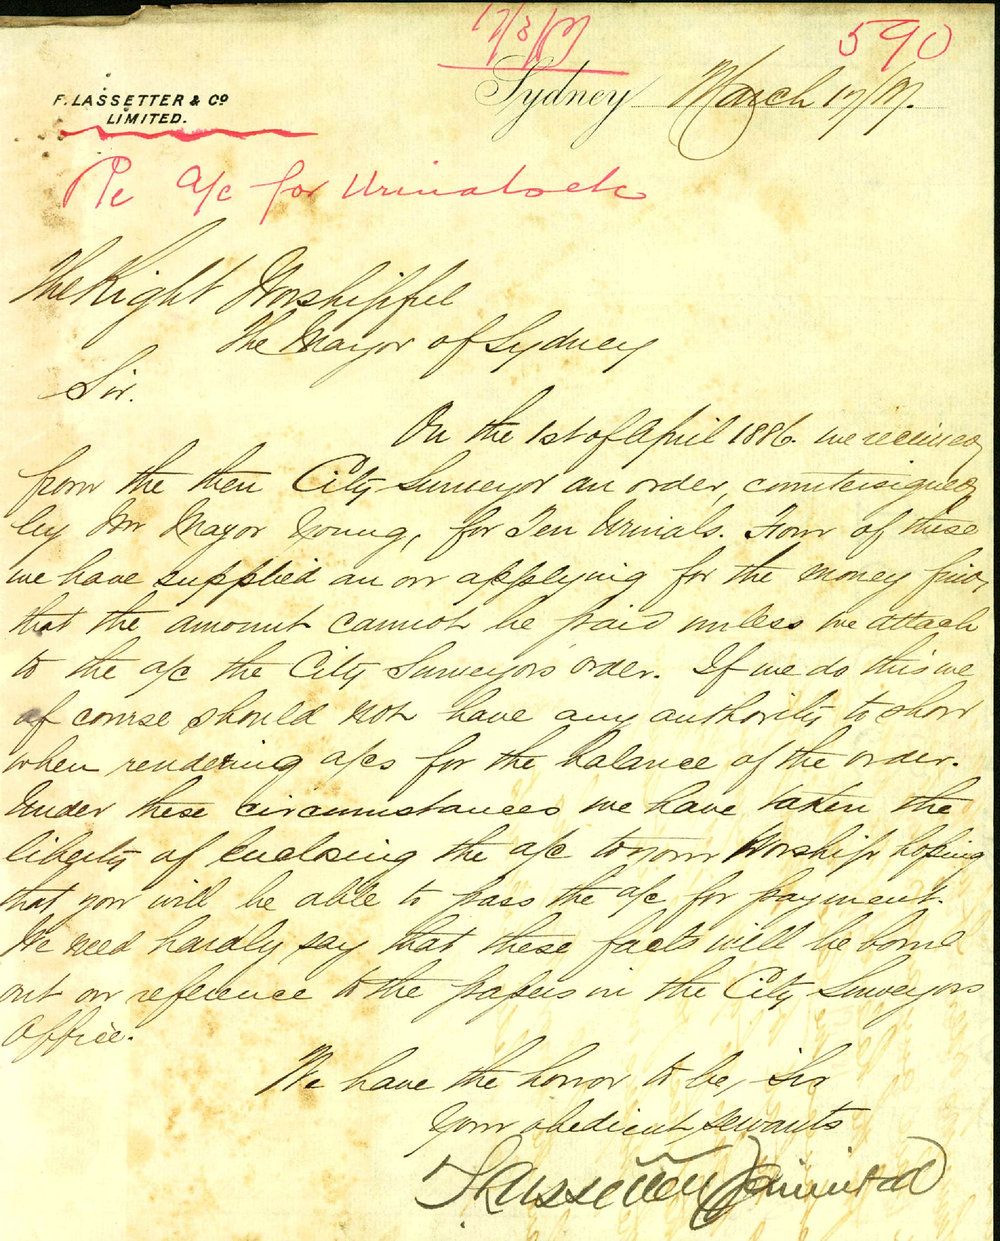 17/3/87
590
F. LASSETTER & Co
LIMITED.
Sydney March 17/87.
Re a/c for Urinals etc
The Right Worshipful
The Mayor of Sydney
Sir.
On the 1st of April 1886 we received
from the then City Surveyor an order, countersigned
by Mr Mayor Young, for Ten Urinals. Four of these
we have supplied an on applying for the money find,
that the amount cannot be paid unless we attach
to the a/c the City Surveyors order. If we do this we
of course should not have any authority to show
when rendering a/cs for the balance of the order.
Under these circumstances we have taken the
liberty of enclosing the a/c to your Worship hoping
that you will be able to pass the a/c for payment.
We need hardly say that these facts will be borne
out on reference to the papers in the City Surveyors
Office.
We have the honor to be, Sir
Your obedient servants
F Lassetter & Co Limited